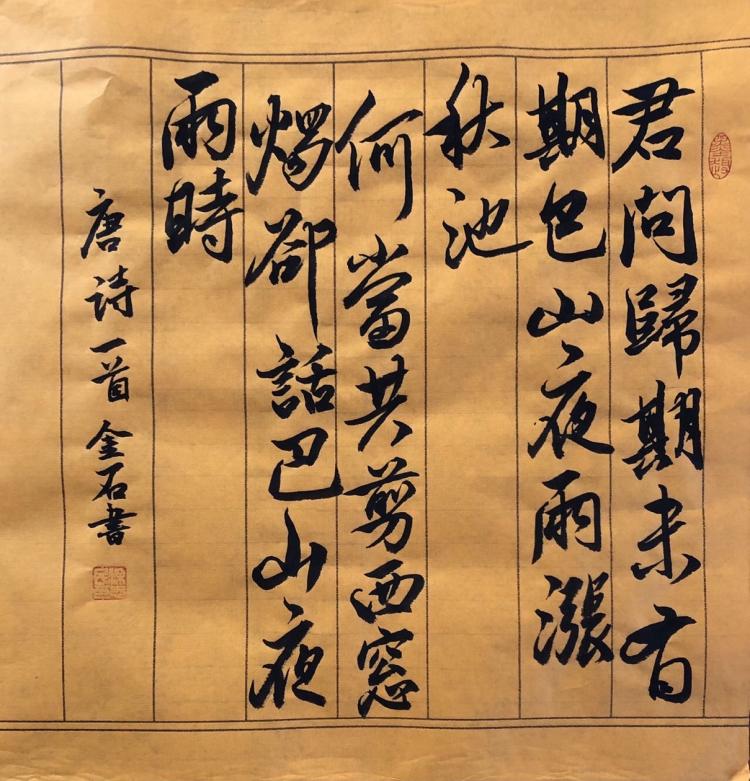 君問歸期未有
期巴山夜雨漲
秋池
何當共剪西窓
燭卻話巴山夜
雨時
唐詩一首金石書